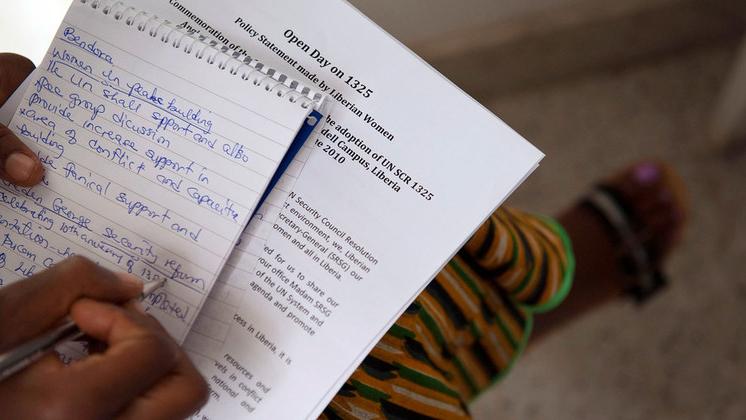 Bendora
Women in peace building
the UN shall spport and also
free group dicussion
provide increase support in
area of conflict and capacity
building
finical support and
George security reform
celebrating 10th annivery of 1325
Open Day on 1325
Policy Statement made by Liberian Women
Commemoration of the
he adoption of UN SCR 1325
dell Campus, Liberia
e 2010
N Security Council Resolution
t environment, we, Liberian
ecretary-General (SRSG) our
omen and all in Liberia.
ed for us to share our
your office Madam SRSG
of the UN System and
agenda and promote
cess in Liberia, it is
resources and
vels in conflict
national and